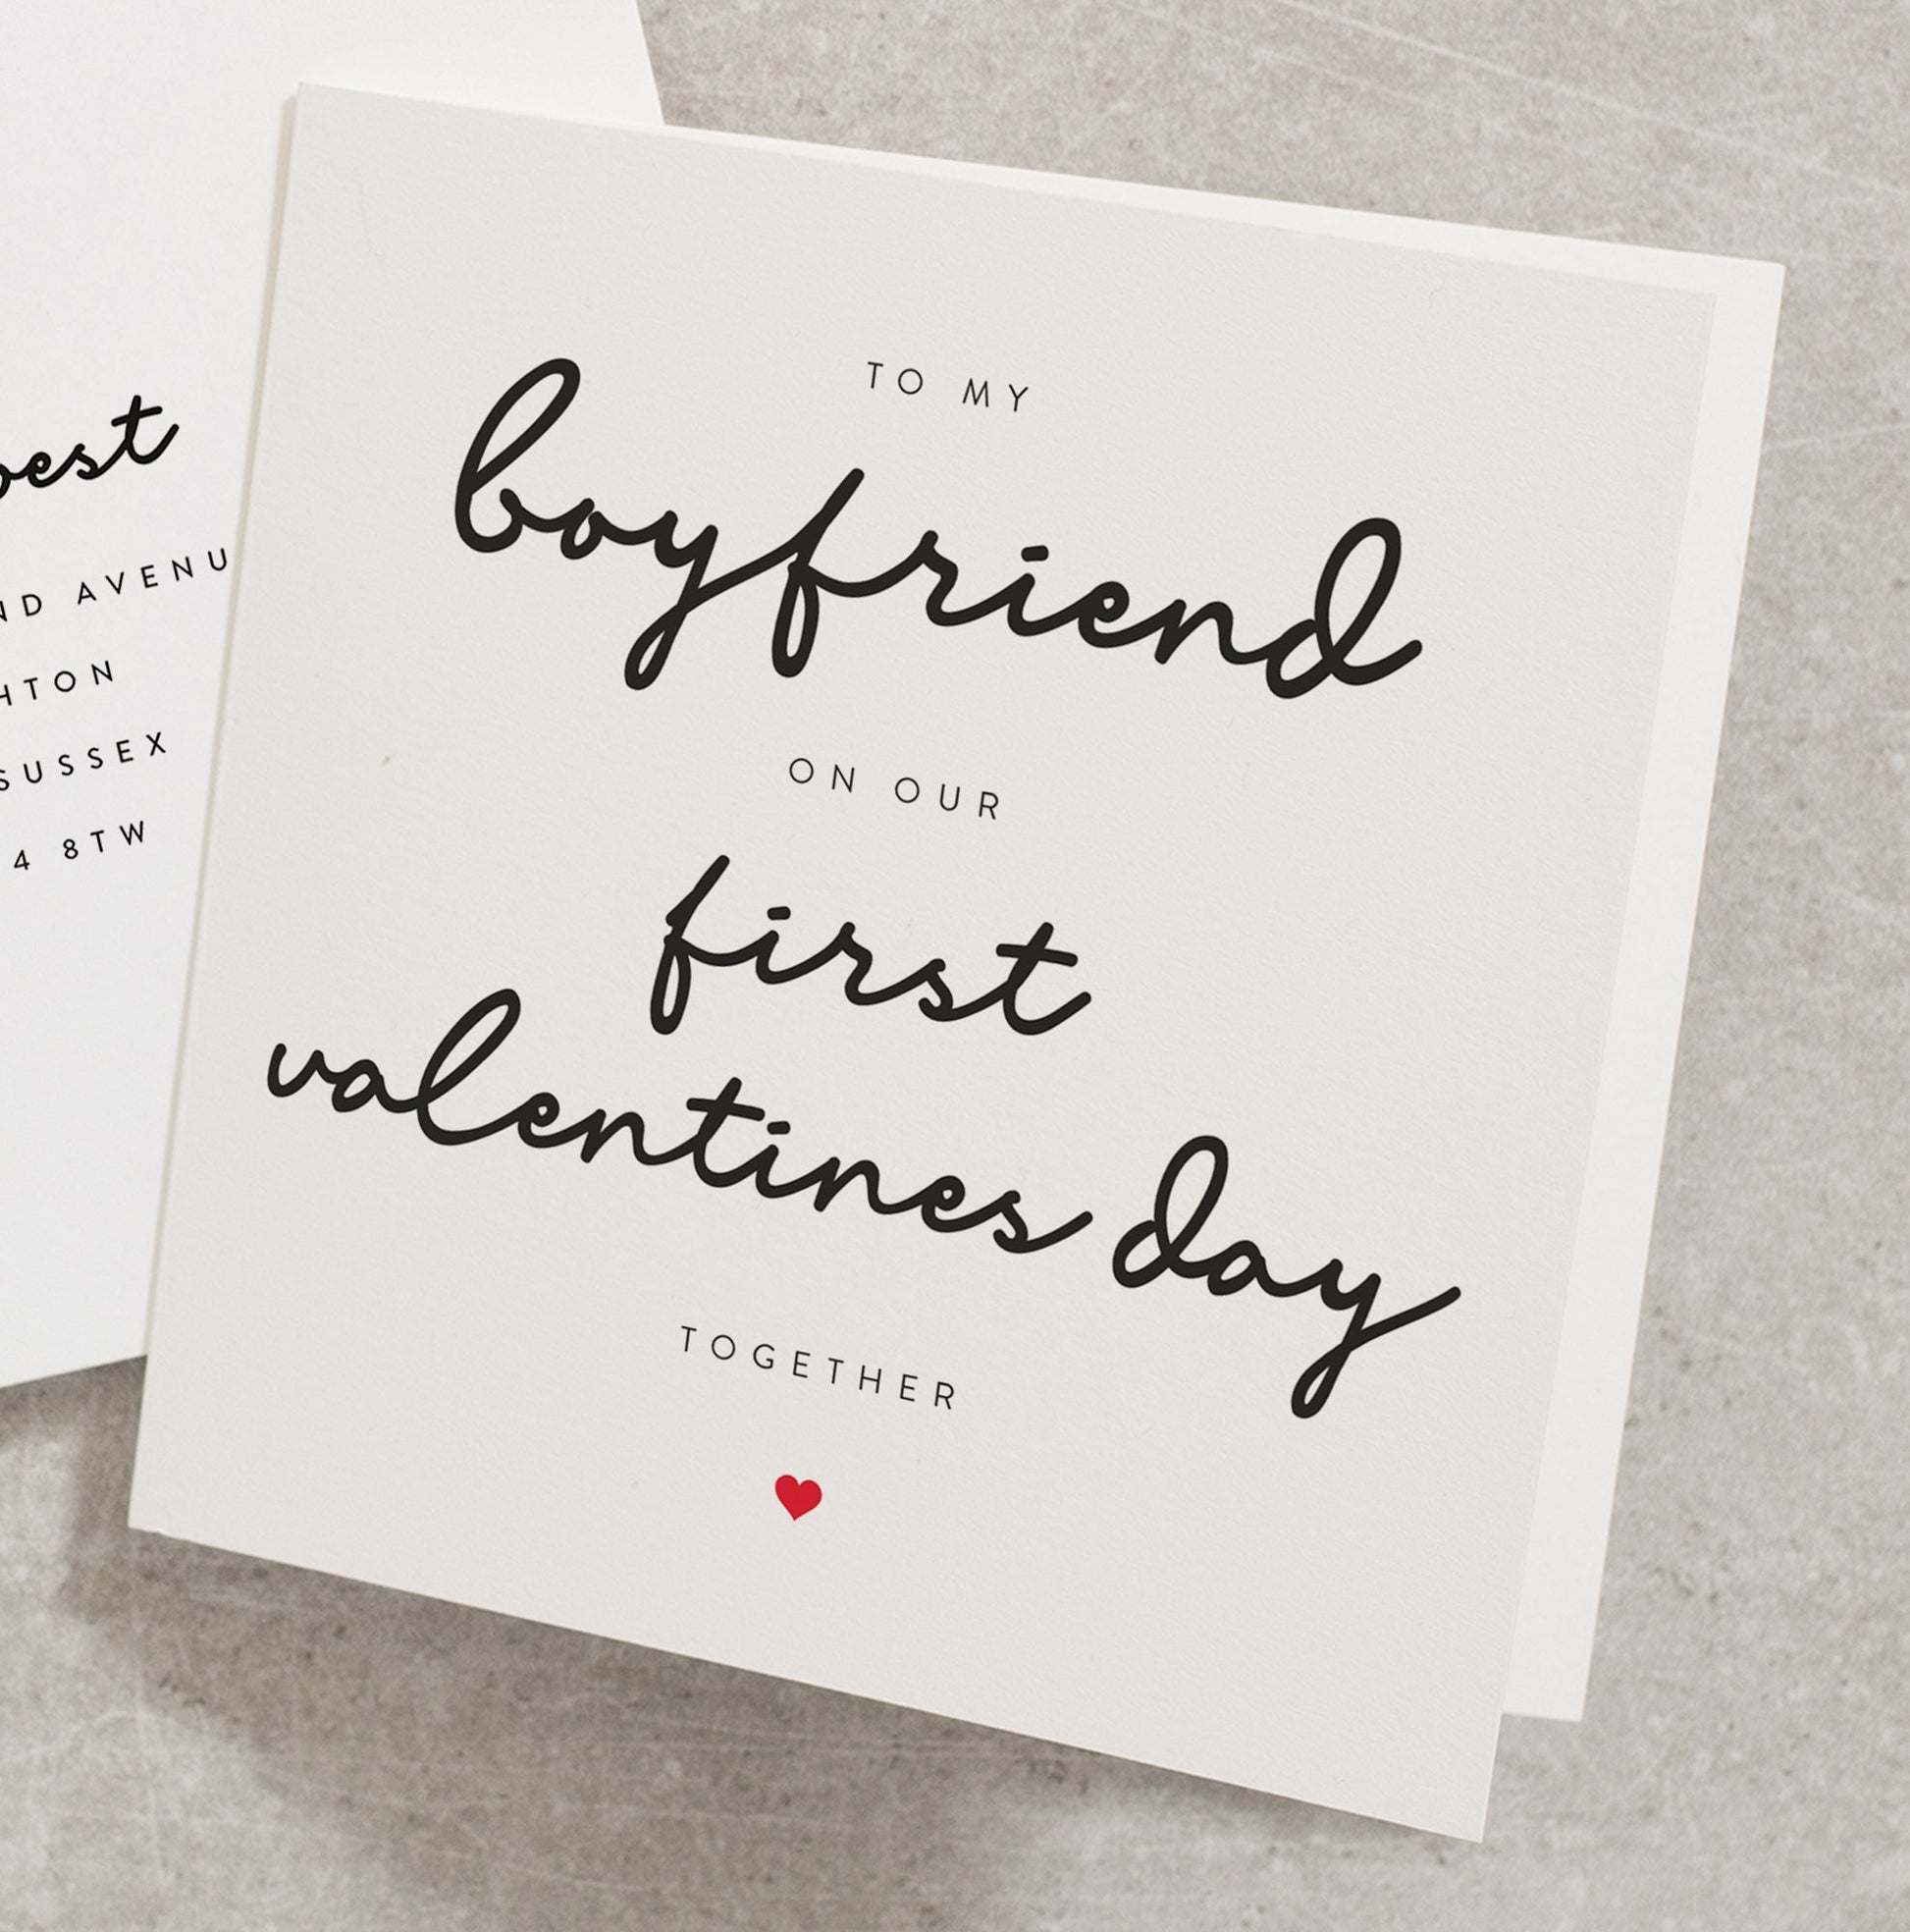 TO MY
boyfriend
ON OUR
first
valentines day
TOGETHER
AVENU
SUSSEX
4 8TW